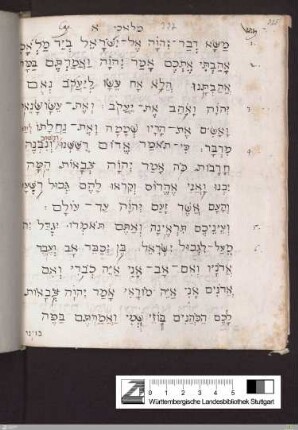 מלאכי א
משא דבר־יהוה אל־ישראל ביד מלאכי
אהבתי אתכם אמר יהוה ואמרתם במה
אהבתנו הלא אח עשו ליעקב נאם
יהוה ואהב את־יעקב ואת־עשו שנאתי
ואשים את־הריו שממה ואת־נחלתו
מדבר כי־תאמר אדום רששנו ונבנה
חרבות כה אמר יהוה צבאות המה
יבנו ואני אהרוס וקראו להם גבול רשעה
והעם אשר זעם יהוה עד־עולם
ועיניכם תראינה ואתם תאמרו יגדל
מעל לגבול ישראל בן יכבד אב ועבד
אדניו ואם־אב־אני איה כבודי ואם
אדונים אני איה מוראי אמר יהוה צבאות
לכם הכהנים בוזי שמי ואמרתם במה
בזינו
0 1 2 3 4 5
Württembergische Landesbibliothek Stuttgart